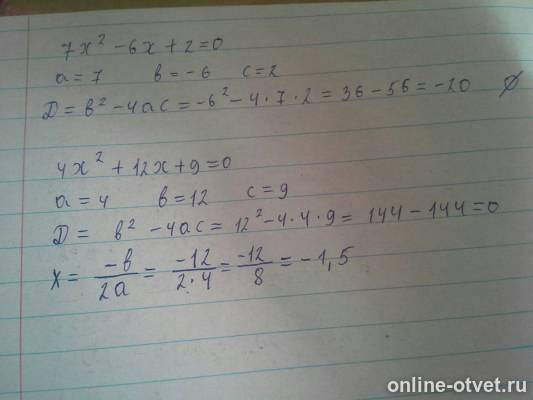 7x² - 6x + 2 = 0
a = 7 в = -6 c = 2
D = в² - 4ac = -6² - 4·7·2 = 36 - 56 = -20 ∅
4x² + 12x + 9 = 0
a = 4 в = 12 c = 9
D = в² - 4ac = 12² - 4·4·9 = 144 - 144 = 0
x = -в/2a = -12/2·4 = -12/8 = -1,5
online-otvet.ru